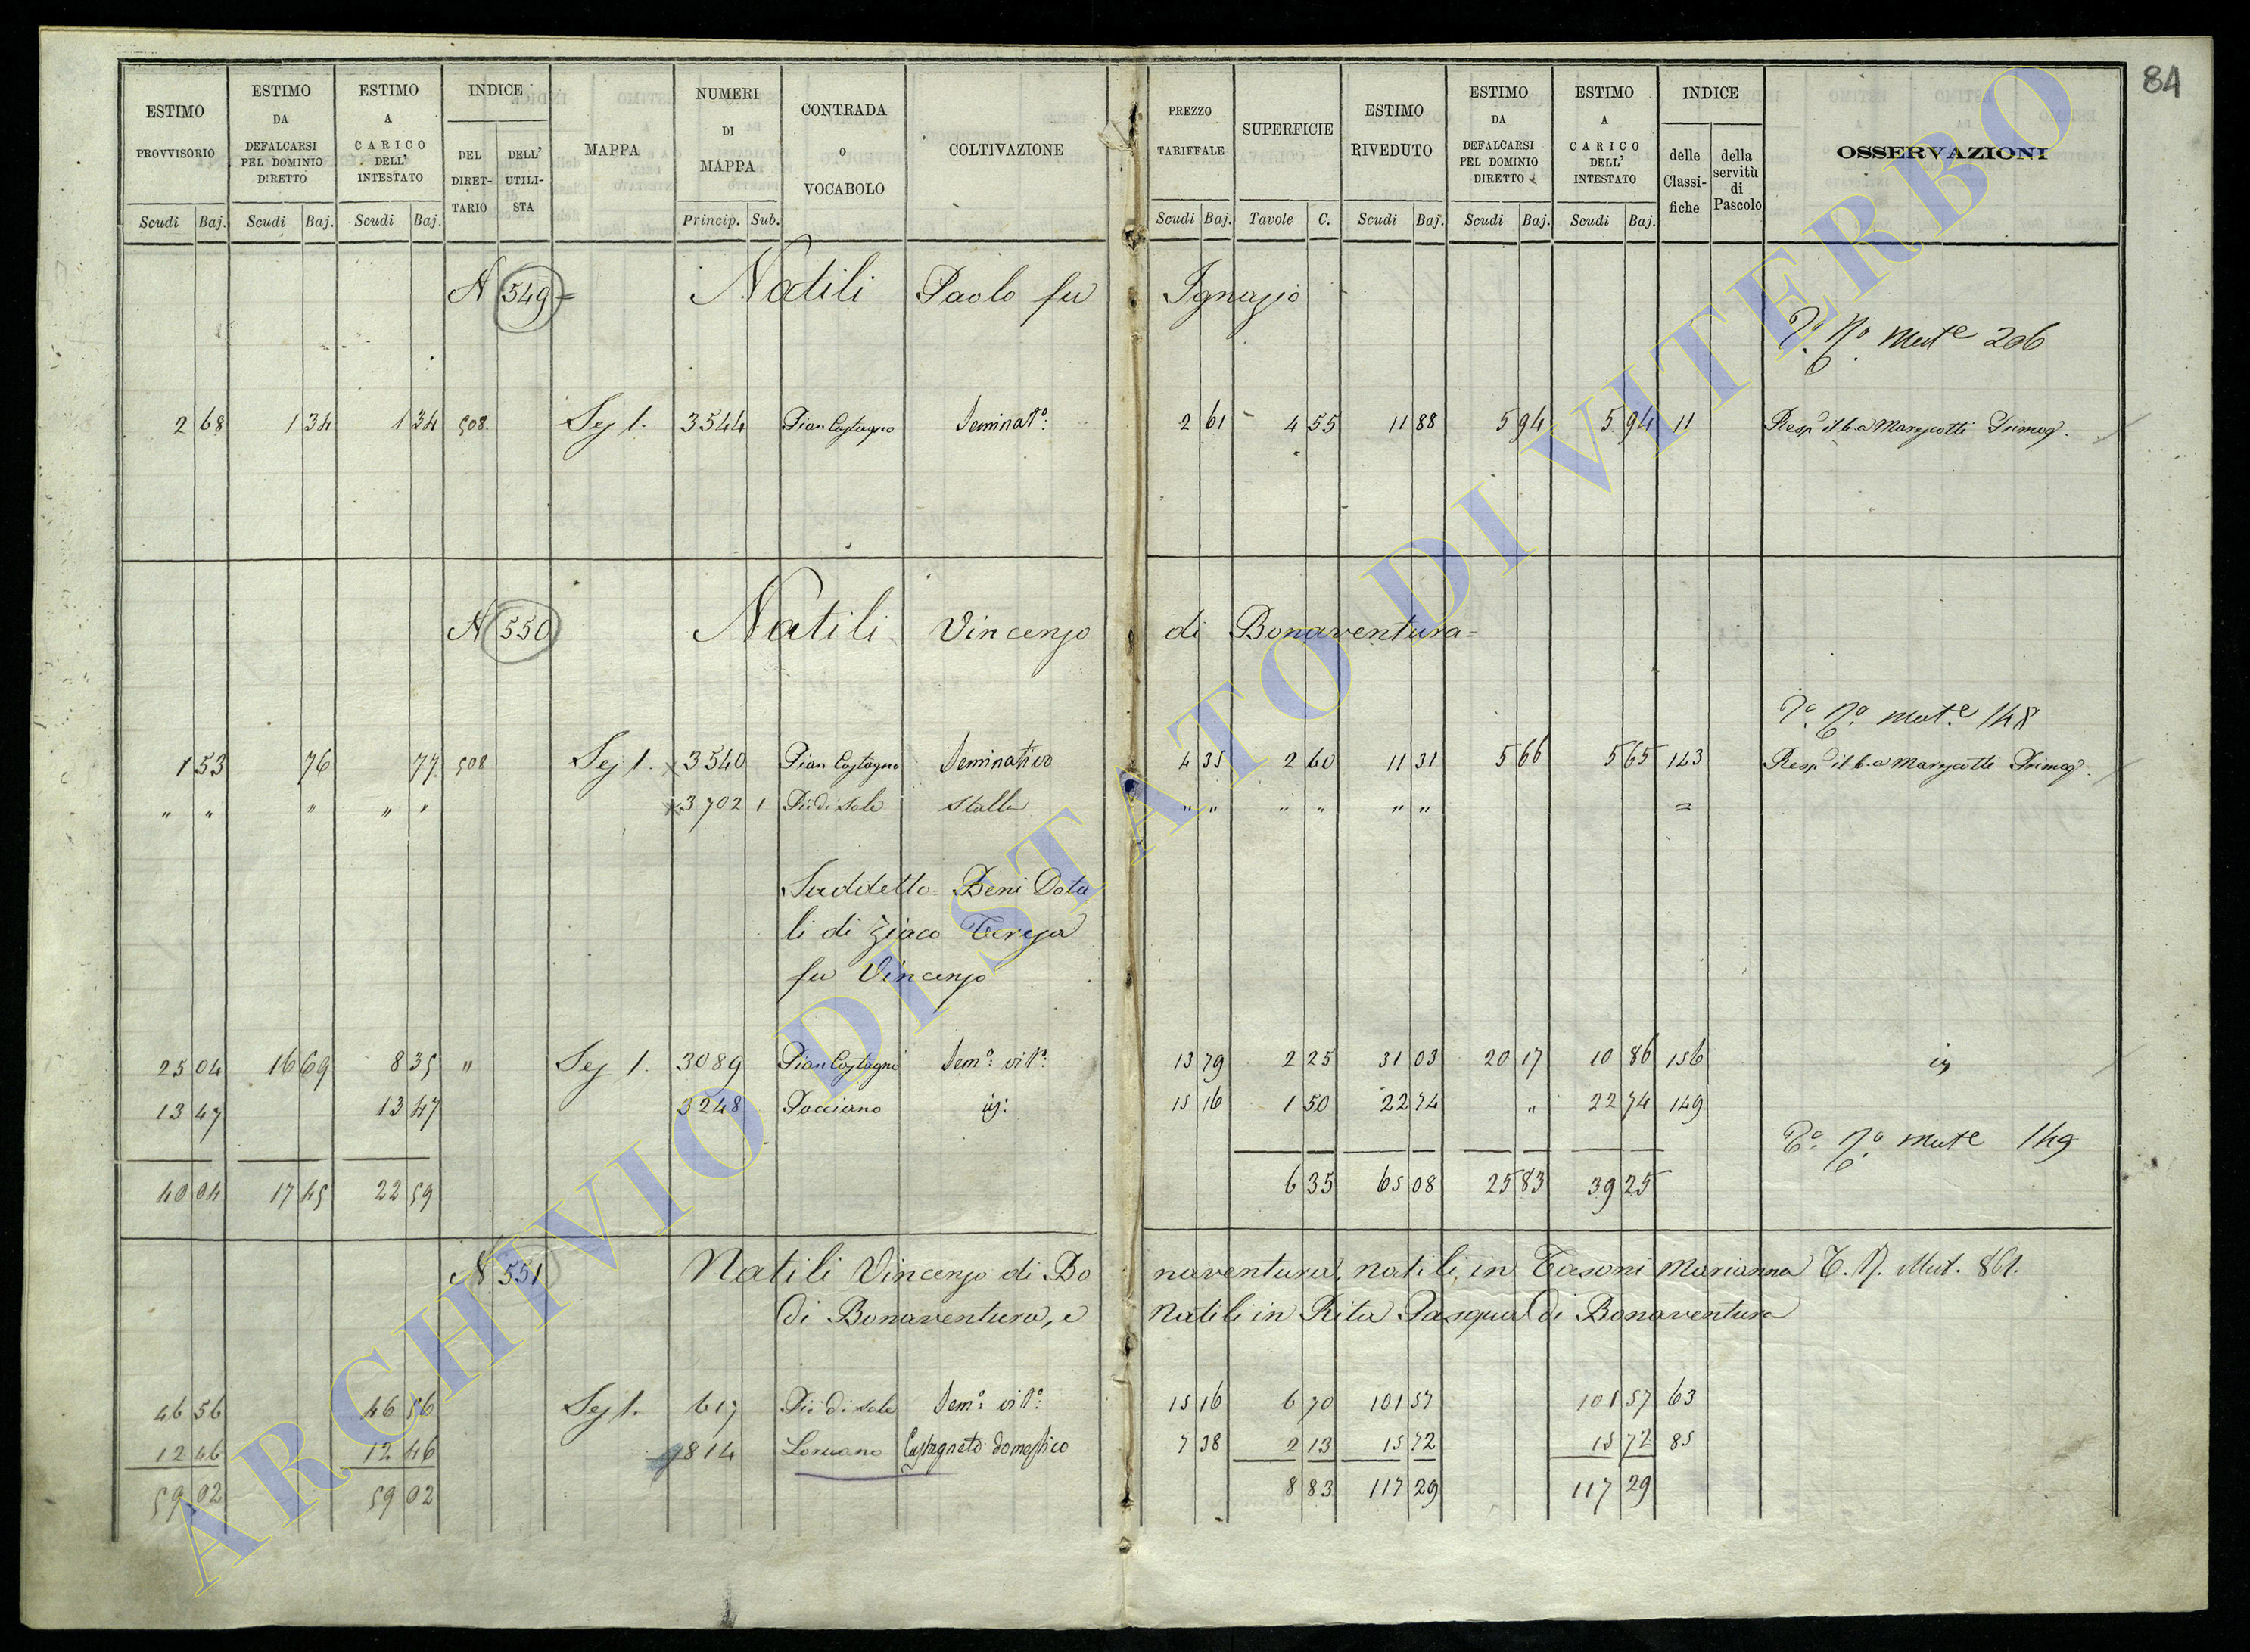 84
ESTIMO PROVVISORIO ESTIMO DA DEFALCARSI PEL DOMINIO DIRETTO ESTIMO A CARICO DELL' INTESTATO INDICE DEL DIRET-TARIO DELL' UTILI-STA MAPPA NUMERI DI MAPPA CONTRADA O VOCABOLO COLTIVAZIONE PREZZO TARIFFALE SUPERFICIE ESTIMO RIVEDUTO ESTIMO DA DEFALCARSI PEL DOMINIO DIRETTO ESTIMO A CARICO DELL' INTESTATO INDICE delle Classi-fiche della servitù di Pascolo OSSERVAZIONI
Scudi Baj. Scudi Baj. Scudi Baj. Princip. Sub. Scudi Baj. Tavole C. Scudi Baj. Scudi Baj. Scudi Baj.
N 549 = Natili Paolo fu Ignazio
Mut.e 206
2 68 1 34 1 34 508 Sez 1. 3544 Pian Castagno Seminat.o: 2 61 4 55 11 88 5 94 5 94 11 Resp. Primog.
N 550 Natili Vincenzo di Bonaventura =
mut.e 148
1 53 76 77 508 Sez 1. x 3540 Pian Castagno Seminativo 4 35 2 60 11 31 5 66 5 65 143 Resp. Primog.
" " " " " x 3702 1 Piè di sole Stalla " " " " " " =
Suddetto = Beni Dota
li di Ziaco Teresa
fu Vincenzo
25 04 16 69 8 35 " Sez 1. 3089 Pian Castagno Sem.o: vit.o: 13 79 2 25 31 03 20 17 10 86 156
13 47 13 47 3248 Pocciano 15 16 1 50 22 74 " 22 74 149
mut.e 149
40 04 17 45 22 59 6 35 65 08 25 83 39 25
N 551 Natili Vincenzo di Bo naventura, Natili in Tasoni Marianna T. N. Mut. 861.
di Bonaventura, e Natili in Rita Pasqua di Bonaventura
46 56 46 56 Sez 1. 617 Piè di sole Sem.o: vit.o: 15 16 6 70 101 57 101 57 63
12 46 12 46 814 Castagneto domestico 7 38 2 13 15 72 15 72 85
59 02 59 02 8 83 117 29 117 29
ARCHIVIO DI STATO DI VITERBO